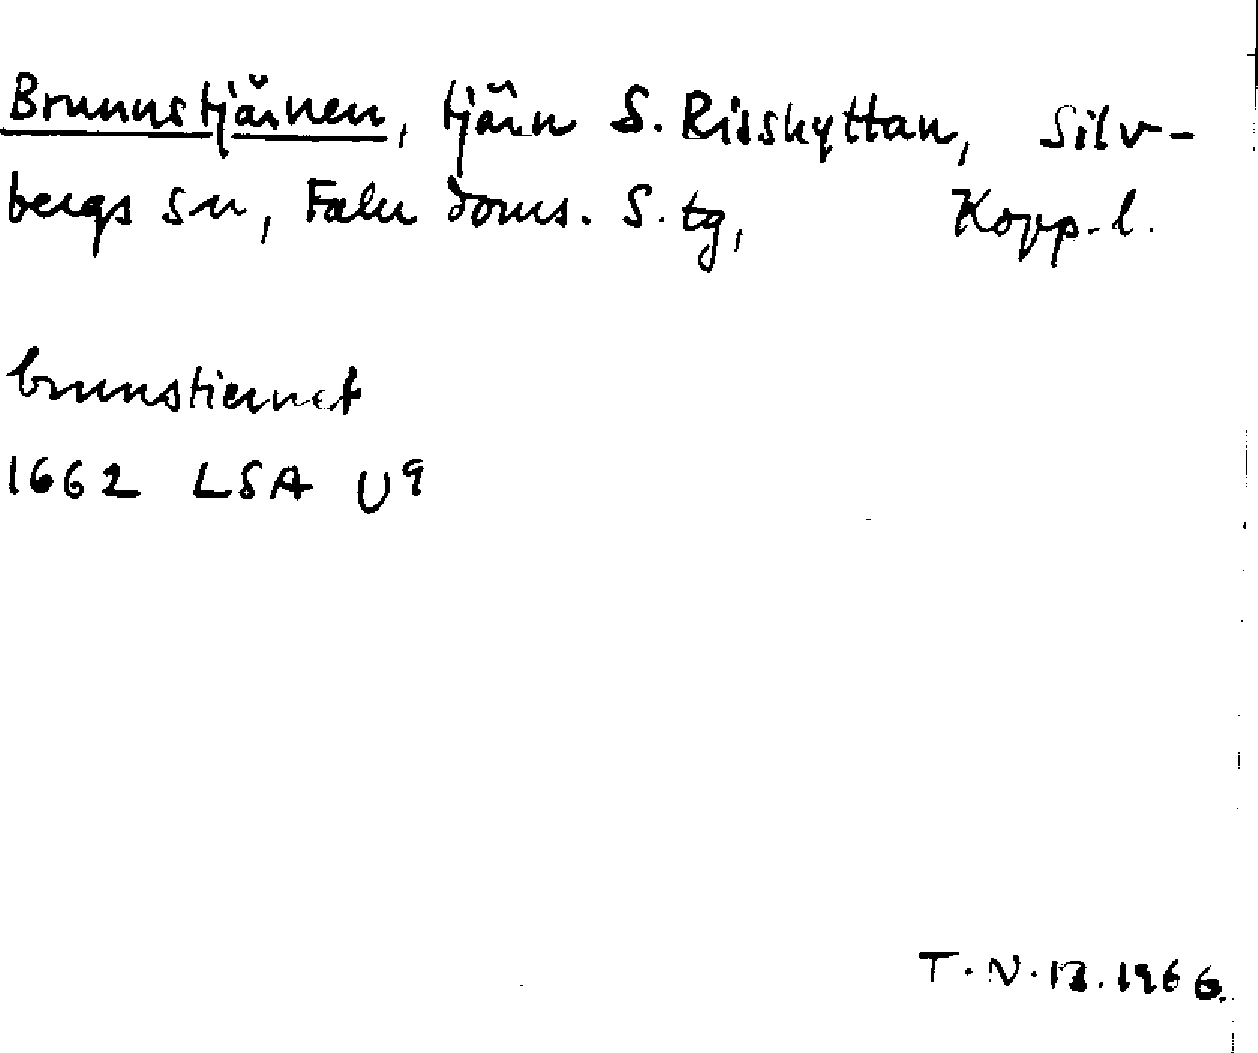 Brunnstjärnen, tjärn S. Risshyttan, Silv-
bergs sn, Falu doms. S. tg, Kopp. l.
brunstiernet
1662 LSA U9
T. N. B. 1966.